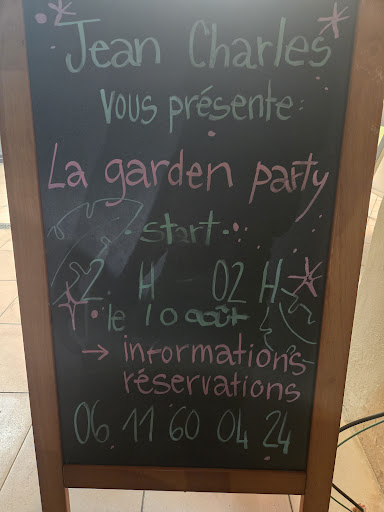 Jean Charles
vous présente:
La garden party
start
2 H 02 H
le 10 août
→ informations
réservations
06 11 60 04 24